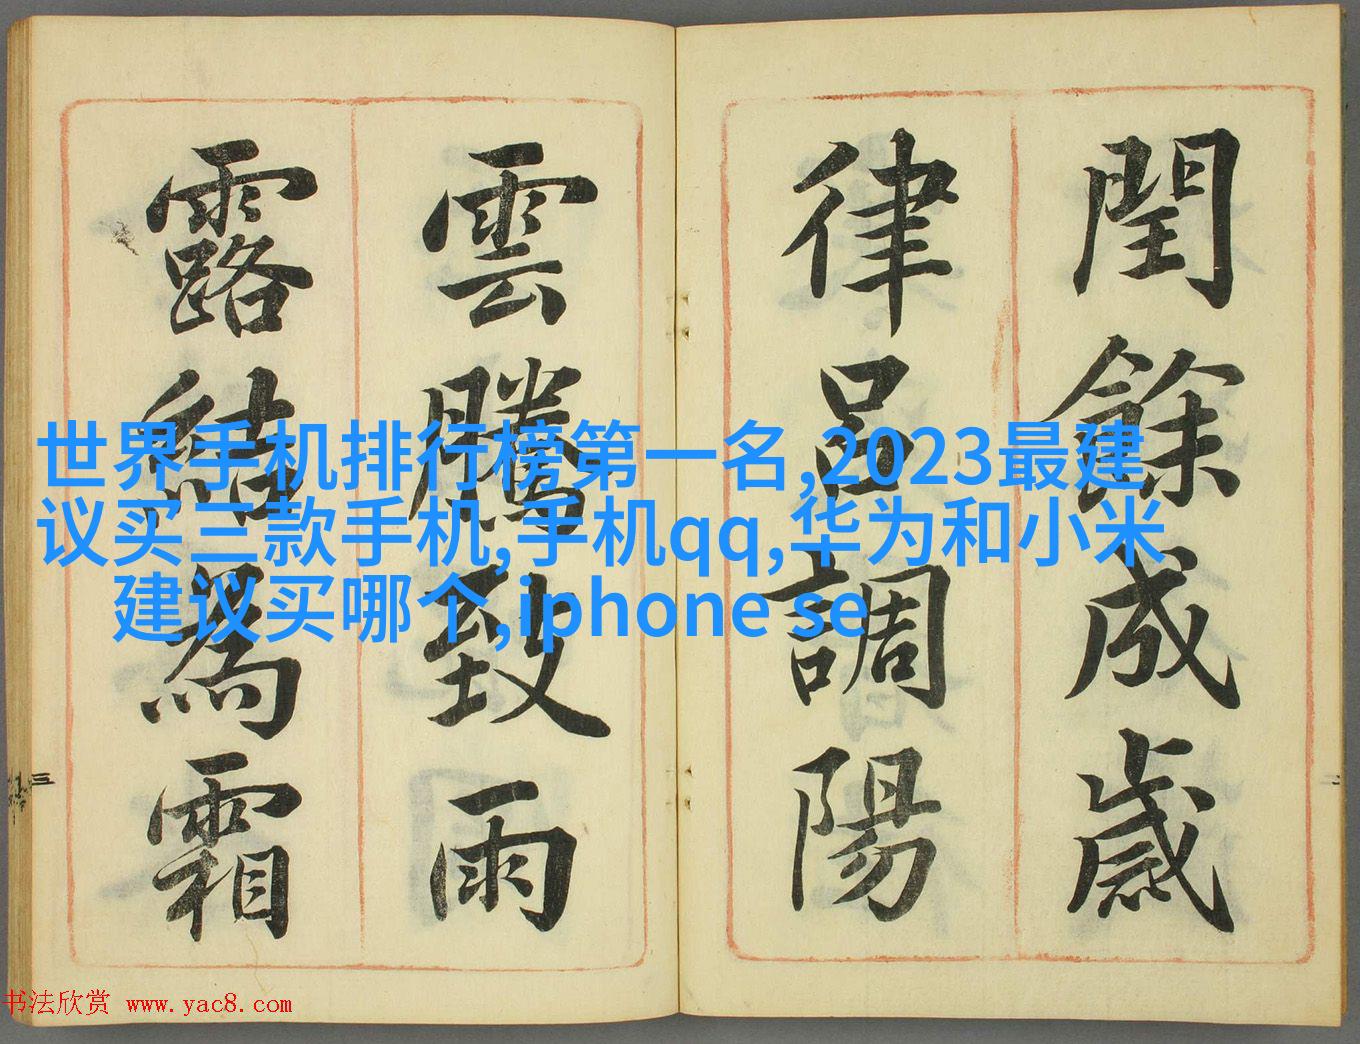 閏餘成歲
律呂調陽
雲騰致雨
露結為霜
世界手机排行榜第一名,2023最建
议买三款手机,手机qq,华为和小米
建议买哪个,iphone se
三
二
书法欣赏 www.yac8.com